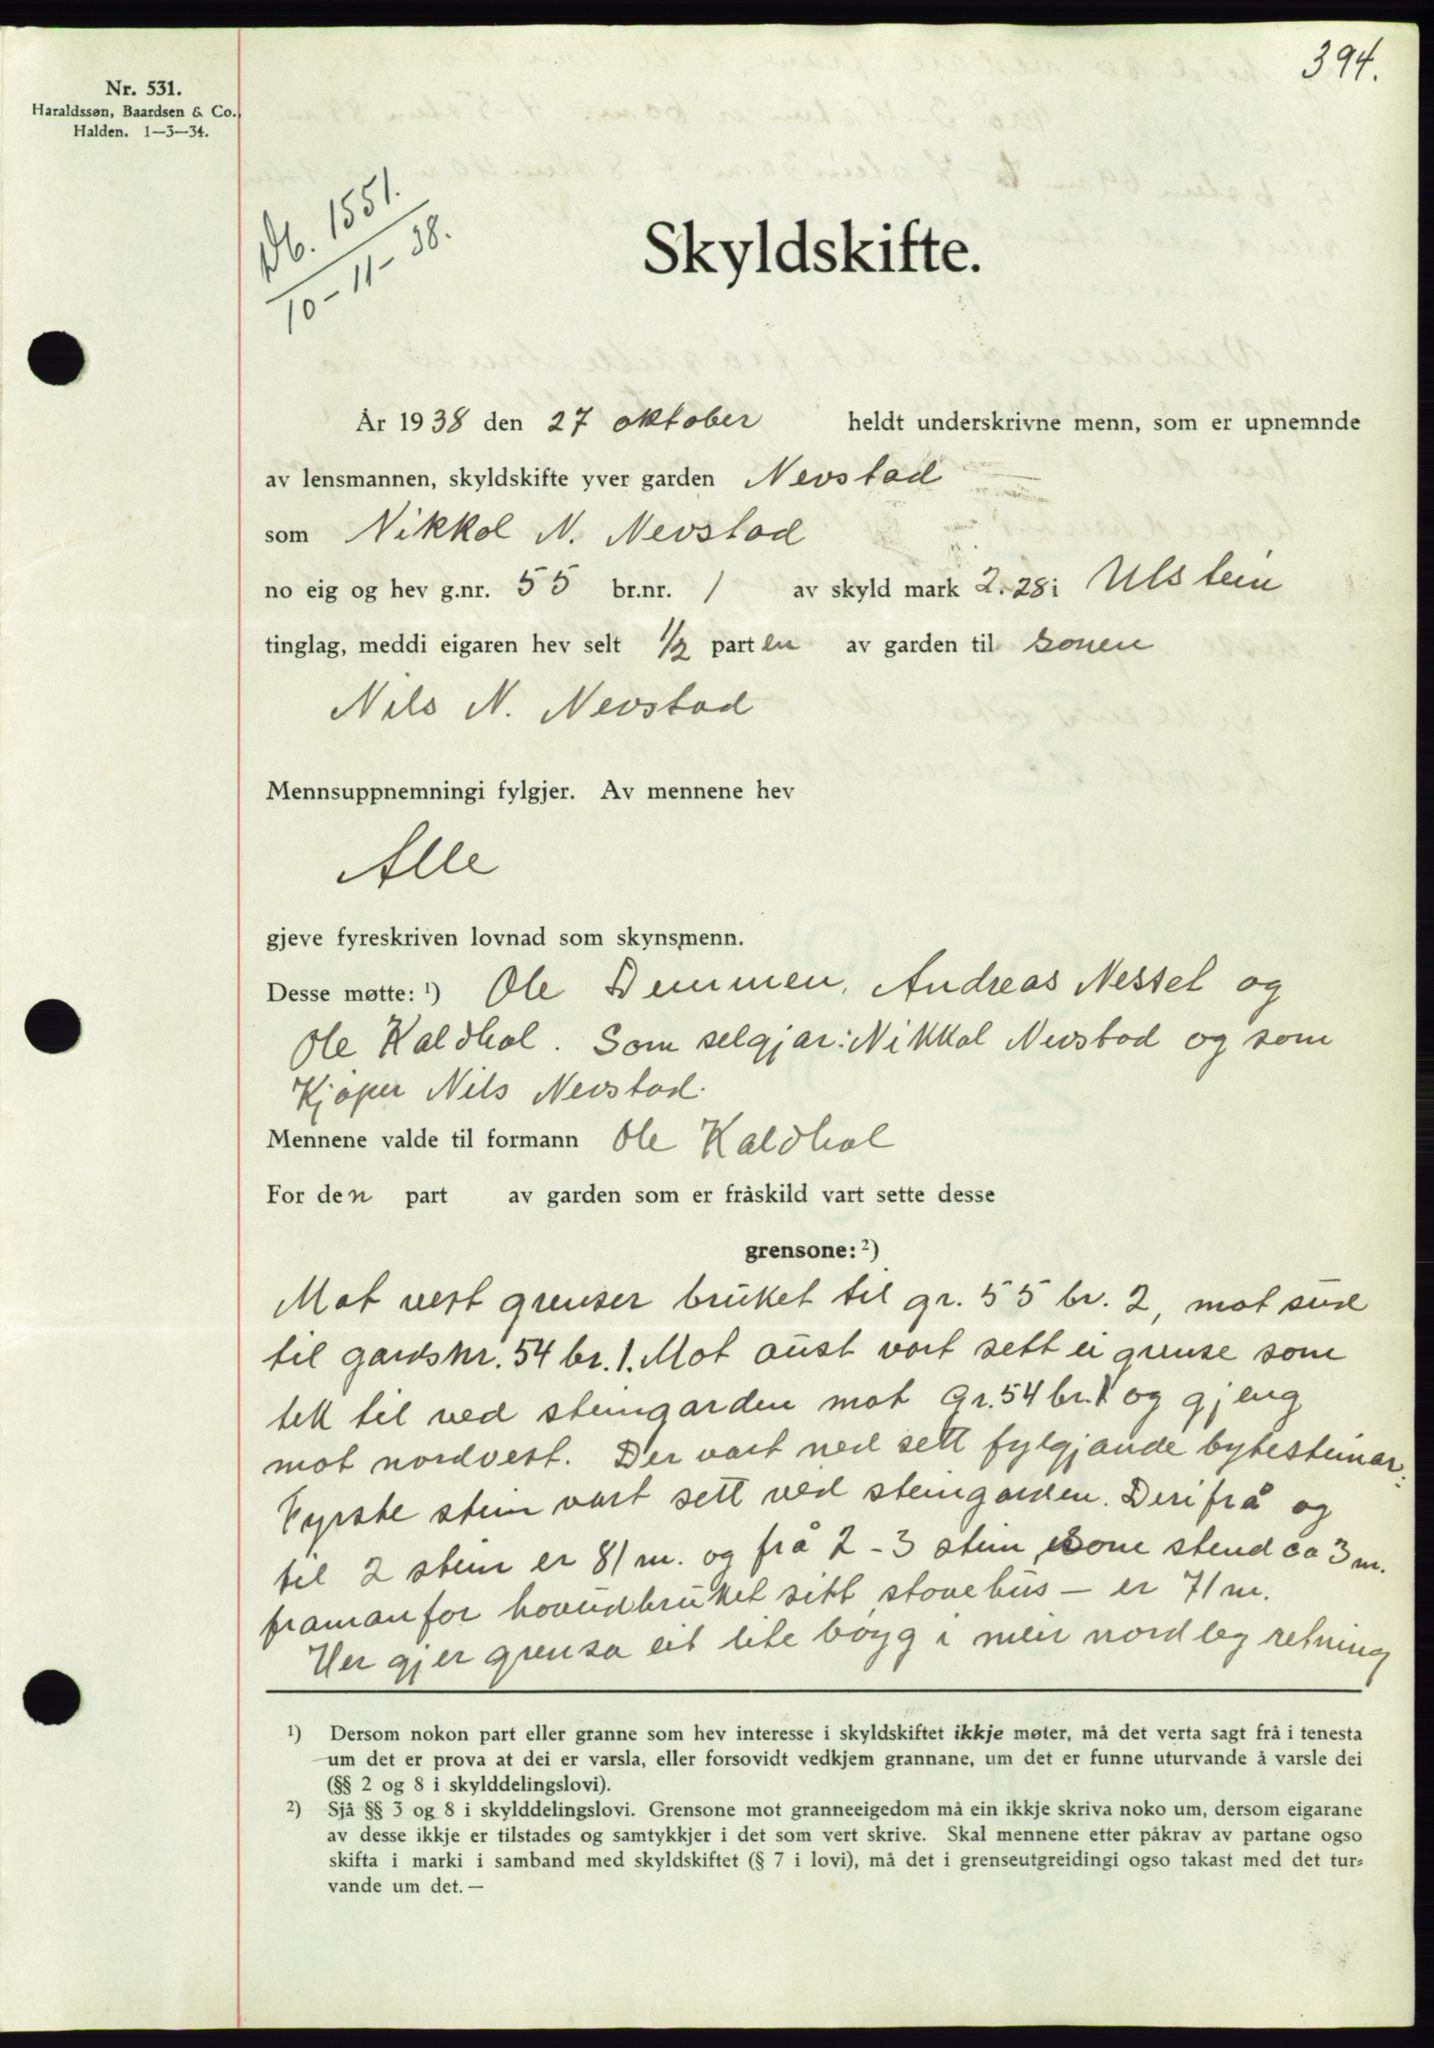 394.
Nr. 531.
Haraldssøn, Baardsen & Co.,
Halden. 1—3—34.
Db. 1551.
10-11-38.
Skyldskifte.
År 1938 den 27 oktober heldt underskrivne menn, som er upnemnde
av lensmannen, skyldskifte yver garden Nevstad
som Nikkol N. Nevstad
no eig og hev g.nr. 55 br.nr. 1 av skyld mark 2.28 i Ulstein
tinglag, meddi eigaren hev selt 1/2 parten av garden til sonen
Nils N. Nevstad
Mennsuppnemningi fylgjer. Av mennene hev
Alle
gjeve fyreskriven lovnad som skynsmenn.
Desse møtte: 1) Ole Dimmen, Andreas Nesset og
Ole Kaldhol. Som selgjar: Nikkol Nevstad og som
Kjøper Nils Nevstad.
Mennene valde til formann Ole Kaldhol
For den part av garden som er fråskild vart sette desse
grensone: 2)
Mot vest grenser bruket til gr. 55 br. 2, mot sud
til gardsnr. 54 br. 1. Mot aust vart sett ei grense som
tek til ved steingarden mot gr. 54 br. 1 og gjeng
mot nordvest. Der vart ned sett fylgjande bytesteinar:
Fyrste stein vart sett ved steingarden. Derifrå og
til 2 stein er 81 m. og frå 2 - 3 stein, som stend ca 3 m.
framanfor hovudbruket sitt stovehus — er 71 m.
Her gjer grensa eit lite bøyg i meir nordleg retning
1) Dersom nokon part eller granne som hev interesse i skyldskiftet ikkje møter, må det verta sagt frå i tenesta
um det er prova at dei er varsla, eller forsovidt vedkjem grannane, um det er funne uturvande å varsle dei
(§§ 2 og 8 i skylddelingslovi).
2) Sjå §§ 3 og 8 i skylddelingslovi. Grensone mot granneeigedom må ein ikkje skriva noko um, dersom eigarane
av desse ikkje er tilstades og samtykkjer i det som vert skrive. Skal mennene etter påkrav av partane ogso
skifta i marki i samband med skyldskiftet (§ 7 i lovi), må det i grenseutgreidingi ogso takast med det tur-
vande um det. —